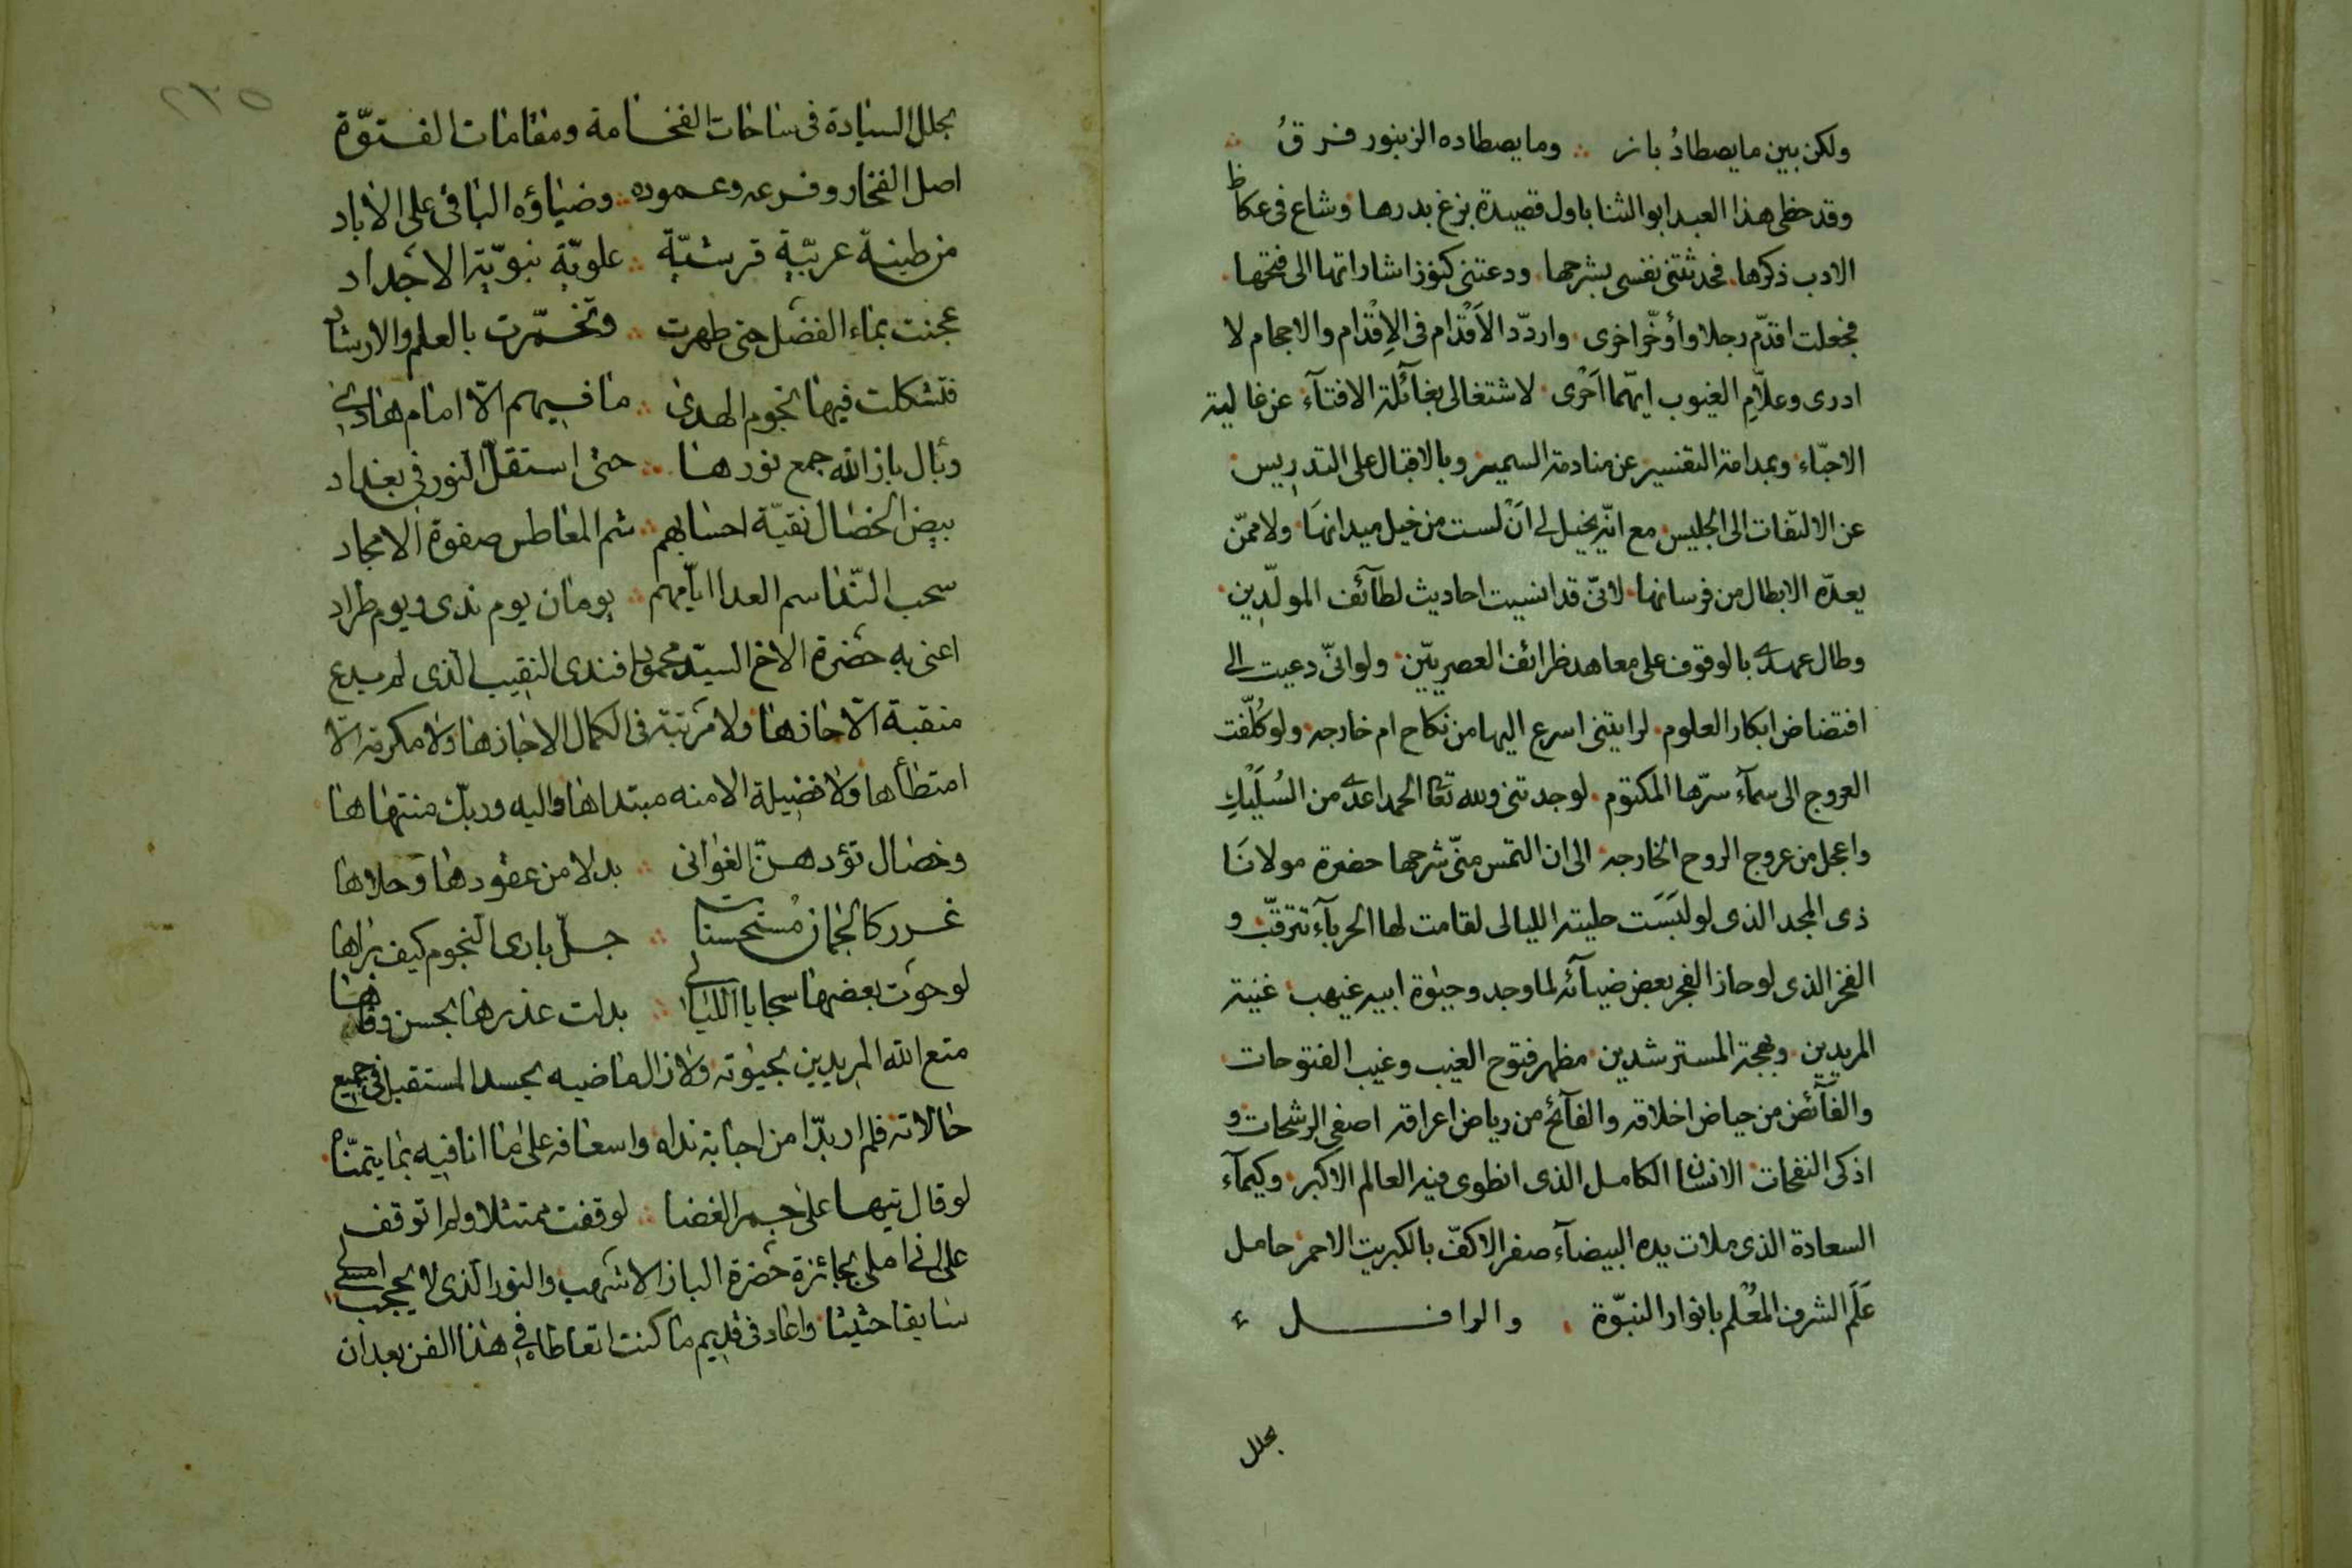 ولكن بين ما يصطادُ باز ∴ وما يصطاده الزنبور فرقُ ∴
وقد حظى هذا العبد ابو الثنا باول قصيدة بزغ بدرها وشاع فى عكاظ
الادب ذكرها. فحدثتنى نفسى بشرحها. ودعتنى كنوز اشاراتها الى فتحها.
فجعلت اقدّم رجلا وأؤخّر اخرى. واردّد الاَقْدَام فى الاِقْدَام والاحجام لا
ادرى وعلاّمِ الغيوب ايهّما اَحْرى. لاشتغالى بغآئلة الافتآء عن غالية
الاحبّاء. وبمدامة التفسير عن منادمة السمير. وبالاقبال على التدريس
عن الالتفات الى الجليس. مع انّه يخيل لى اَنْ لست من خيل ميدانها. ولا ممّن
يعدّه الابطال من فرسانها. لانّى قد انسيت احاديث لطآئف المولّدين.
وطال عهدى بالوقوف على معاهد ظرائف العصريّين. ولو انّى دعيت الى
افتضاض ابكار العلوم. لرايتنى اسرع اليها من نكاح ام خارجه. ولو كُلّفت
العروج الى سمآء سرّها المكتوم. لوجدتنى ولله تعا الحمد اعدى من السُلَيْكِ
واعجل من عروج الروح الخارجه. الى ان التمس منّى شرحها حضرة مولانَا
ذى المجد الذى لو لبَسَت حليته الليالى لقامت لها الحربآء تترقّب و
الفخر الذى لو حاز الفجر بعض ضيآئه لما وجد وحيٰوة ابيه غيهب. غنية
المريدين. وبهجة المسترشدين. مظهر فتوح الغيب وغيب الفتوحات
والفآئض من حياض اخلاقه والفآئح من رياض اعراقه اصفى الرشحات و
اذكى النفحات. الانسان الكامل الذى انطوى فيه العالم الاكبر. وكيمآء
السعادة الذى ملات يده البيضآء صفر الاكفّ بالكبريت الاحمر. حامل
عَلَم الشرف المُعْلم بانوار النبّوة. والرافل ء
بحلل
٢٣٥
بحلل السيادة فى ساحات الفخامة ومقامات الفتوّة
اصل الفخار وفرعه وعموده ∴ وضياؤه الباقى على الاباد
من طينة عربيّة قرشيّة ∴ علويّة نبويّة الاجداد
عجنت بماء الفضل حتى طهرت ∴ وتخمّرت بالعلم والارشاد
فتشكلت فيها نجوم الهدى ∴ ما فيهم الاّ امام هادى
وبآل باز الله جمع نورها ∴ حتى استقلّ النور فى بغداد
بيض الخصال نقيّة احسابهم ∴ شم المعاطس صفوة الامجاد
سحب النّدا سم العدا ايّامهم ∴ يومان يوم ندى ويوم طراد
اعنى به حضرة الاخ السيّد محمود افندى النقيب الذى لم يدع
منقبة الاّ حازها ولا مرتبة فى الكمال الا جازها ولا مكرمة الاّ
امتطأها ولا فضيلة الا منه مبتداها واليه وربّك منتهاها.
وخصال تؤدهنّ الغوانى ∴ بدلا من عقودها وحلاها
غرر كالجمان مُستحسنات ∴ جلّ بارى النجوم كيف براها
لو حوت بعضها سجايا الليالى ∴ بدلت غدرها بحسن وفاها
متع الله المريدين بحيوته ولا زال ماضيه يحسد المستقبل فى جميع
حالاته فلم ار بدّا من اجابة نداه واسعافه على ما انا فيه بما يتمنّاه.
لو قال تيها على جمر الغضا ∴ لوقفت ممتثلا ولم اتوقف
على انى املى بجائزة حضرة الباز الاشهب والنور الذى لا يحجب امسى
سابقا حثيثا. واعاد فى قديم ما كنت اتعاطاه فى هذا الفن بعد ان